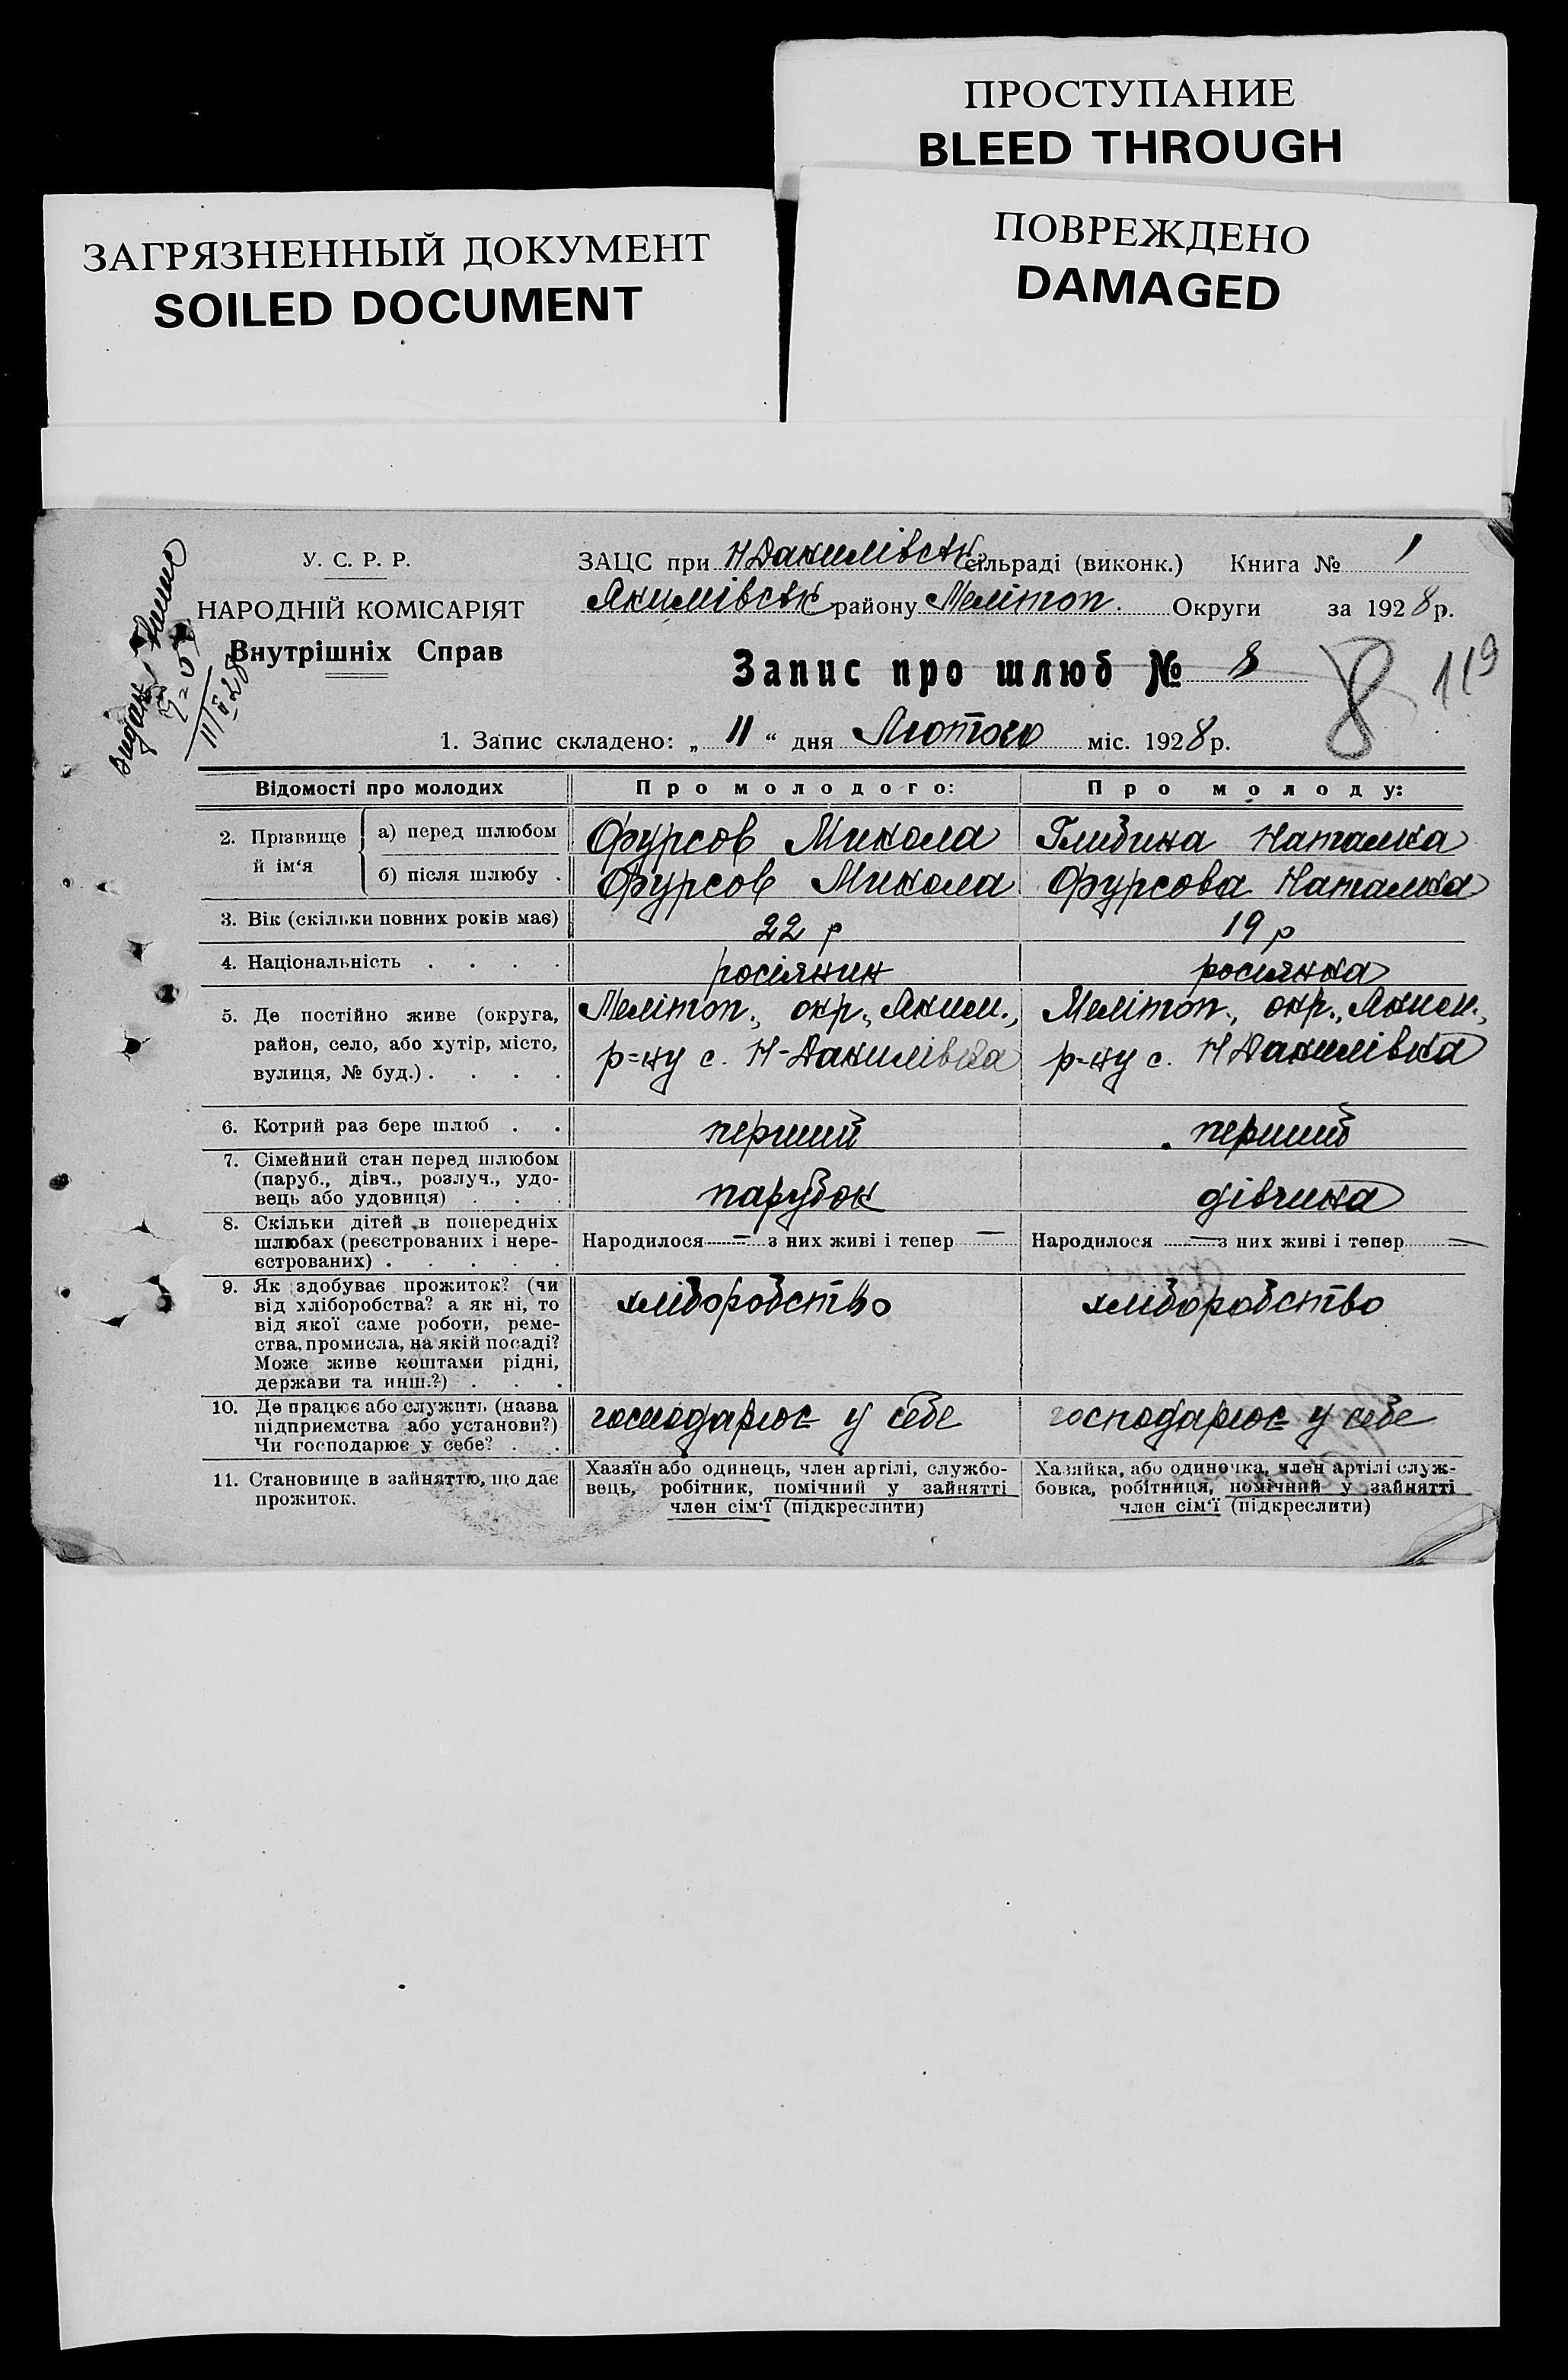 ПРОСТУПАНИЕ
BLEED THROUGH
ЗАГРЯЗНЕННЫЙ ДОКУМЕНТ
SOILED DOCUMENT
ПОВРЕЖДЕНО
DAMAGED
У. С. Р. Р.
НАРОДНІЙ КОМІСАРІЯТ
Внутрішніх Справ
ЗАЦС при Н Данилівськ сільраді (виконк.) Книга № 1
Якимівськ району Мелітоп. Округи за 1928 р.
Запис про шлюб № 8
8 119
11/II 28
1. Запис складено: „ 11 “ дня Лютого міс. 1928 р.
Відомості про молодих Про молодого: Про молоду:
2. Прізвище й ім‘я
а) перед шлюбом Фурсов Микола Глибина Наталка
б) після шлюбу . Фурсов Микола Фурсова Наталка
3. Вік (скільки повних років має) 22 р 19 р
4. Національність . . . . росіянин росіянка
5. Де постійно живе (округа, Мелітоп., окр., Яким., Мелітоп., окр., Яким.,
район, село, або хутір, місто, р=ну с. Н-Данилівка р=ну с. Н Данилівка
вулиця, № буд.) . . . .
6. Котрий раз бере шлюб . . перший перший
7. Сімейний стан перед шлюбом
(паруб., дівч., розлуч., удо-
вець або удовиця) . . . парубок дівчина
8. Скільки дітей в попередніх
шлюбах (реєстрованих і нере- Народилося — з них живі і тепер — Народилося — з них живі і тепер —
єстрованих) . . . . .
9. Як здобуває прожиток? (чи хліборобство хліборобство
від хліборобства? а як ні, то
від якої саме роботи, реме-
ства, промисла, на якій посаді?
Може живе коштами рідні,
держави та инш.?) . . .
10. Де працює або служить (назва господарює у себе господарює у себе
підприємства або установи?)
Чи господарює у себе? . .
11. Становище в зайняттю, що дає
прожиток.
Хазяїн або одинець, член артілі, службо-
вець, робітник, помічний у зайнятті
член сім‘ї (підкреслити)
Хазяйка, або одиночка, член артілі служ-
бовка, робітниця, помічний у зайнятті
член сім‘ї (підкреслити)